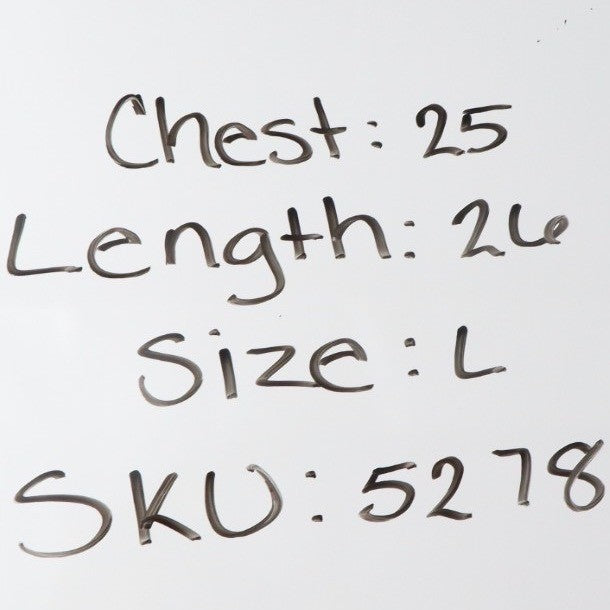 Chest: 25
Length: 26
Size: L
SKU: 5278